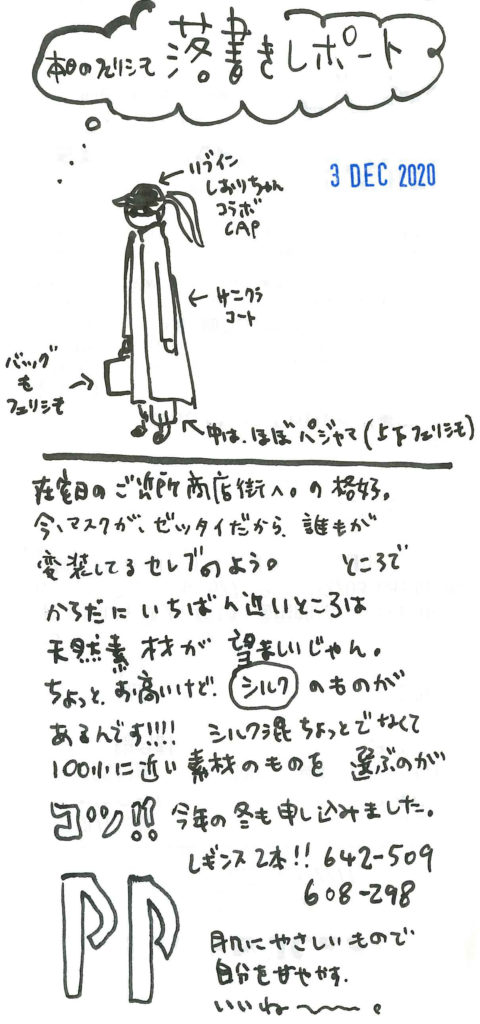 本日のフェリシモ 落書きレポート
3 DEC 2020
リブイン
しおりちゃん
コラボ
CAP
サニクラ
コート
バッグ
も
フェリシモ
中は、ほぼパジャマ(上下フェリシモ)
在宅日のご近所商店街へ。の格好。
今、マスクが、ゼッタイだから、誰もが
変装してるセレブのよう。 ところで
からだにいちばん近いところは
天然素材が望ましいじゃん。
ちょっと、お高いけど、シルクのものが
あるんです!!!! シルク混ちょっとでなくて
100%に近い素材のものを 選ぶのが
コツ!! 今年の冬も申し込みました。
レギンス2本!! 642-509
608-298
PP
肌にやさしいもので
自分を甘やかす、
いいね〜〜。